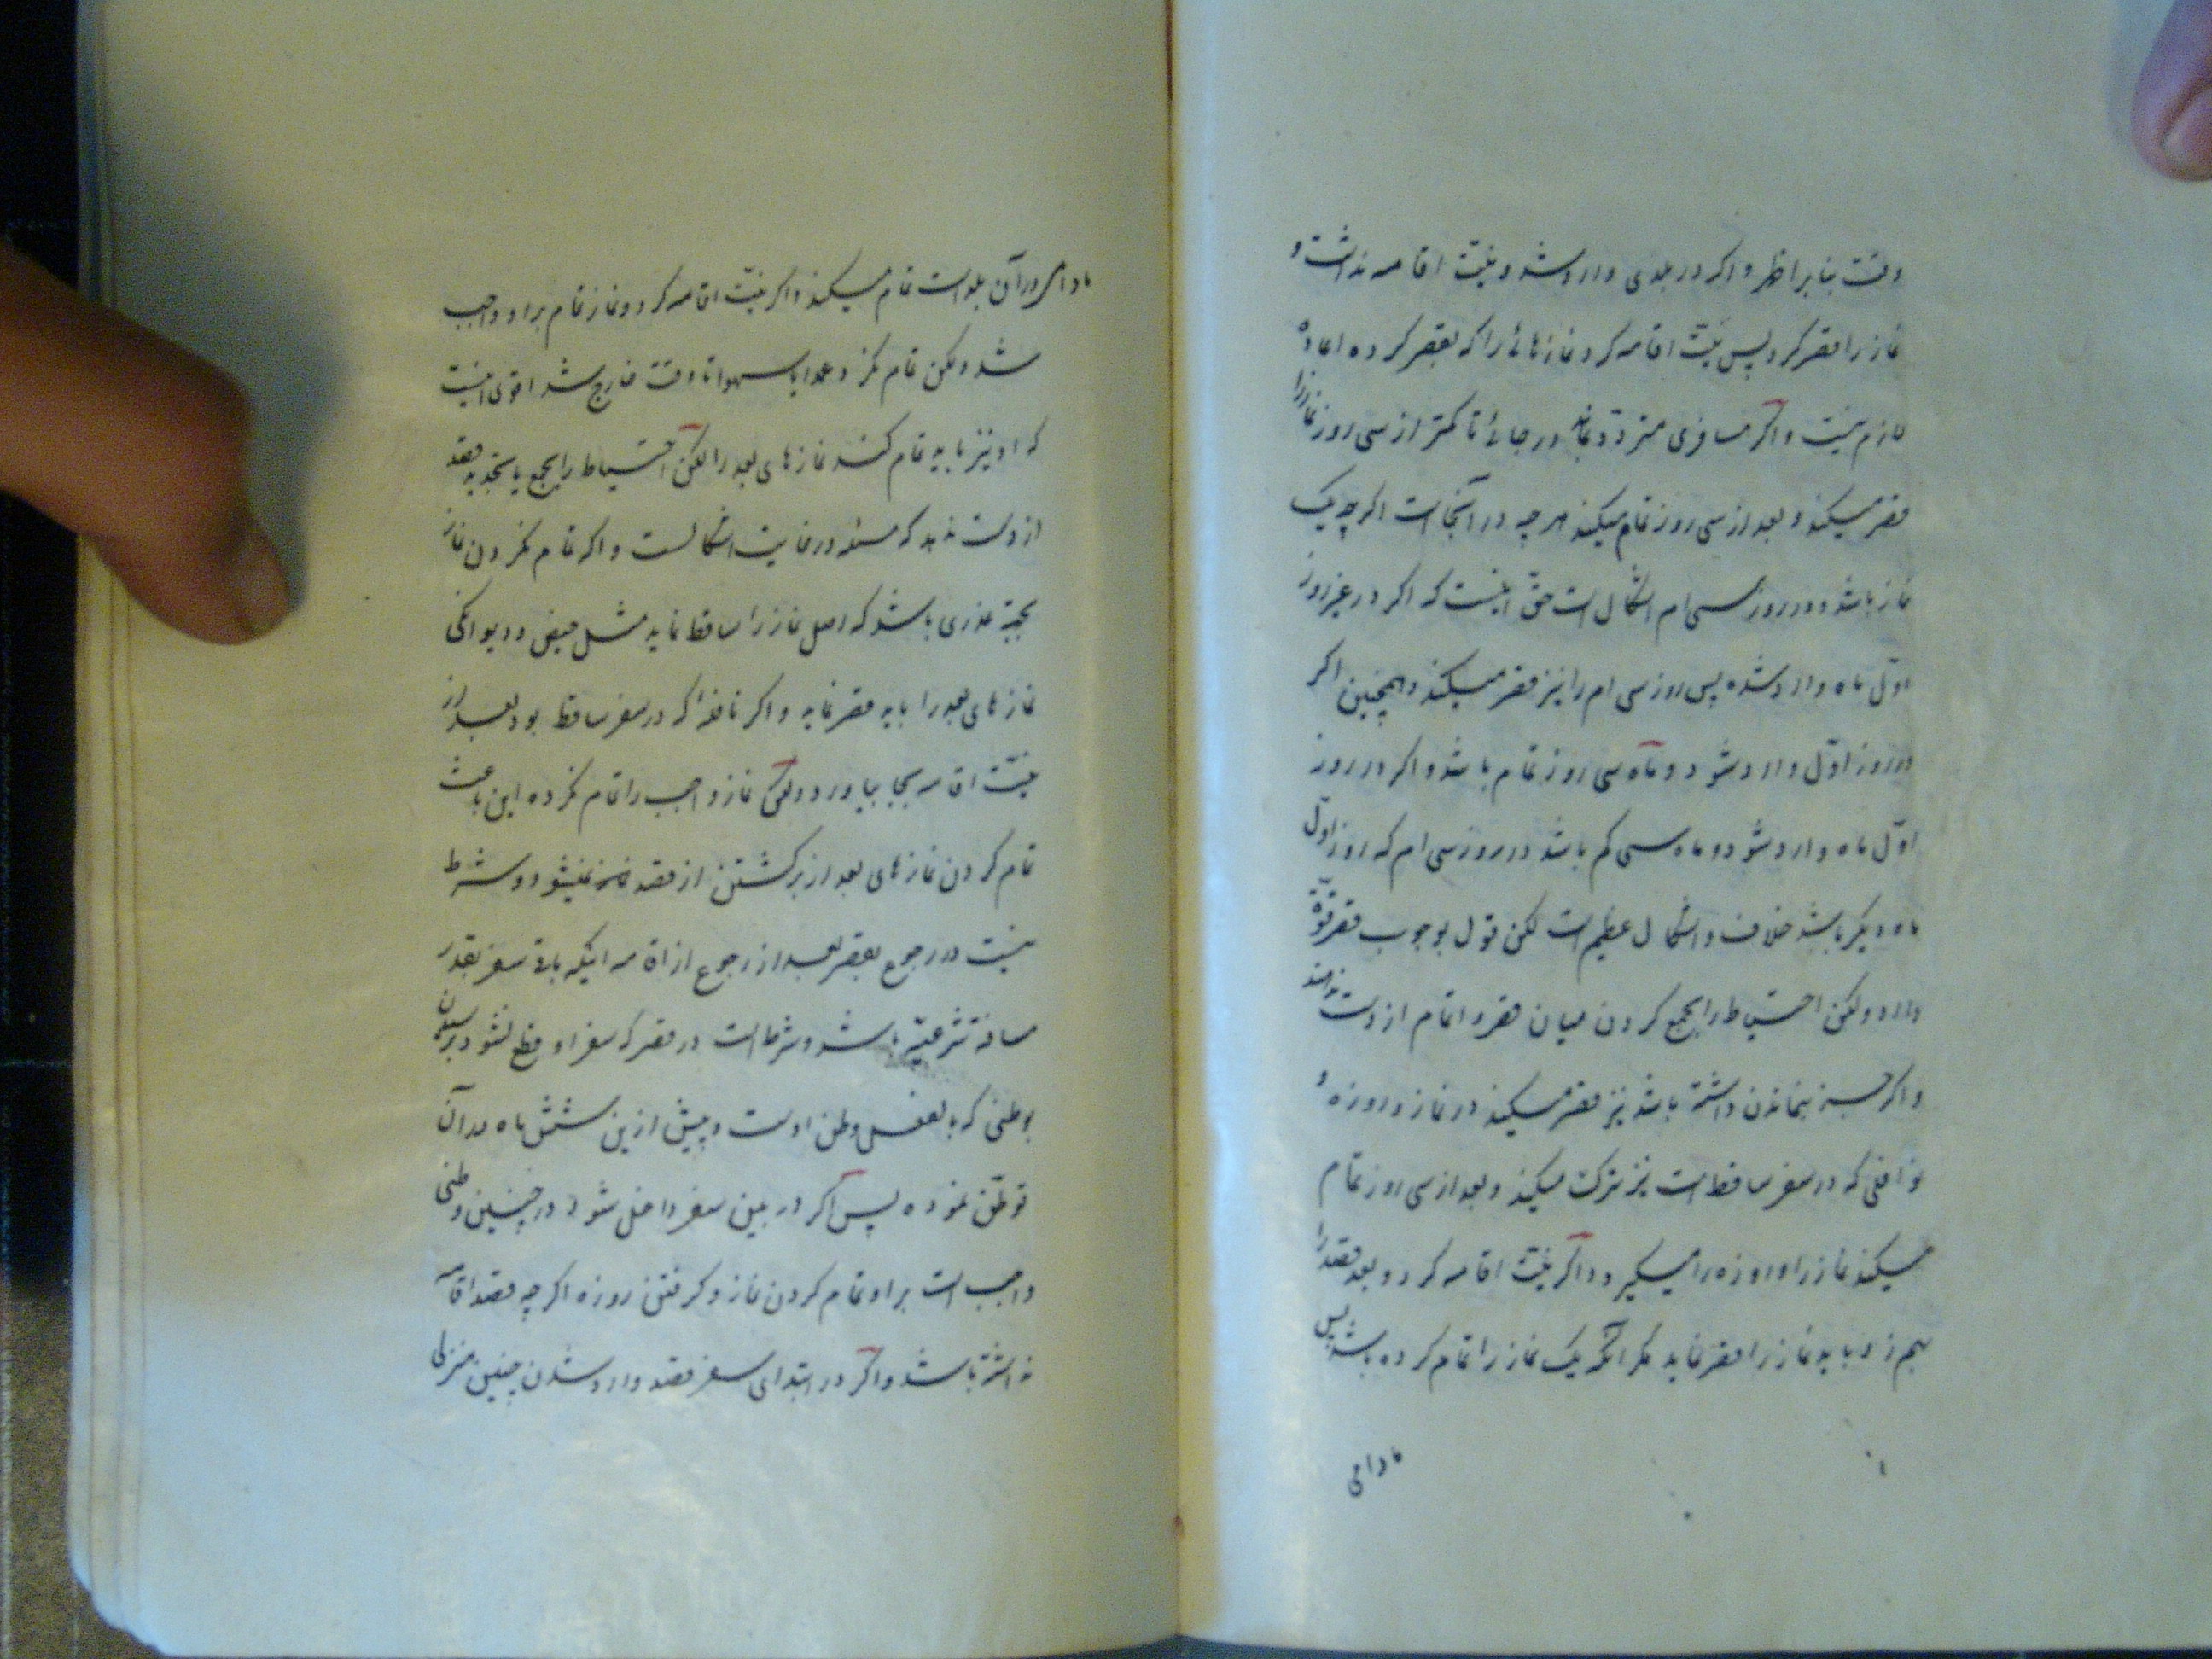 وقت بنابر اظهر و اکر در بلدی وارد شد و نیت اقامه نداشت و
نماز را قصر کرد پس نیت اقامه کرد نمازهائی را که بقصر کرده اعاده
لازم نیست و اکر مسافری متردد بماند در جائی تا کمتر از سی روز نماز را
قصر میکند و بعد از سی روز تمام میکند هر چه در آنجا است اکرچه یک
نماز باشد و در روز سی ام اشکال است حق اینست که اکر در غیر روز
اول ماه وارد شده پس روز سی ام را نیز قصر میکند و همچنین اکر
در روز اول وارد شود و ماه سی روز تمام باشد و اکر در روز
اول ماه وارد شود و ماه سی کم باشد در روز سی ام که روز اول
ماه دیکر باشد خلاف و اشکال عظیم است لکن قول بوجوب قصر قوة
دارد ولکن احتیاط را بجمع کردن میان قصر و اتمام از دست ندهند
و اکر جزم بنماندن داشته باشد نیز قصر میکند در نماز و روزه و
نوافلی که در سفر ساقط است نیز ترک میکند و بعد از سی روز تمام
میکند نماز را و روزه را میکیرد و اکر نیت اقامه کرد و بعد قصد را
بهم زد باید نماز را قصر نماید مکر آنکه یک نماز را تمام کرده باشد پس
مادامی
مادامی در آن بلد است تمام میکند و اکر نیت اقامه کرد و نماز تمام بر او واجب
شد ولکن تمام نکرد عمدا یا سهوا تا وقت خارج شد اقوی اینست
که او نیز باید تمام کند نمازهای بعد را لکن احتیاط را بجمع یا بتجدید قصد
از دست ندهد که مسئله در غایت اشکالست و اکر تمام نکردن نماز
بجهة عذری باشد که اصل نماز را ساقط نماید مثل حیض و دیوانکی
نمازهای بعد را باید قصر نماید و اکر نافله که در سفر ساقط بود بعد از
نیت اقامه بجا بیاورد ولکن نماز واجب را تمام نکرده این باعث
تمام کردن نمازهای بعد از برکشتن از قصد نمیشود و شرط
نیست در رجوع بقصر بعد از رجوع از اقامه اینکه باقی سفر بقدر
مسافة شرعیه باشد و شرط است در قصر که سفر او قطع نشود برسیدن
بوطنی که بالفعل وطن اوست و پیش از این شش ماه در آن
توطن نموده پس اکر در بین سفر داخل شود در چنین وطنی
واجب است بر او تمام کردن نماز و کرفتن روزه اکرچه قصد اقامه
نداشته باشد و اکر در ابتدای سفر قصد وارد شدن چنین منزلی